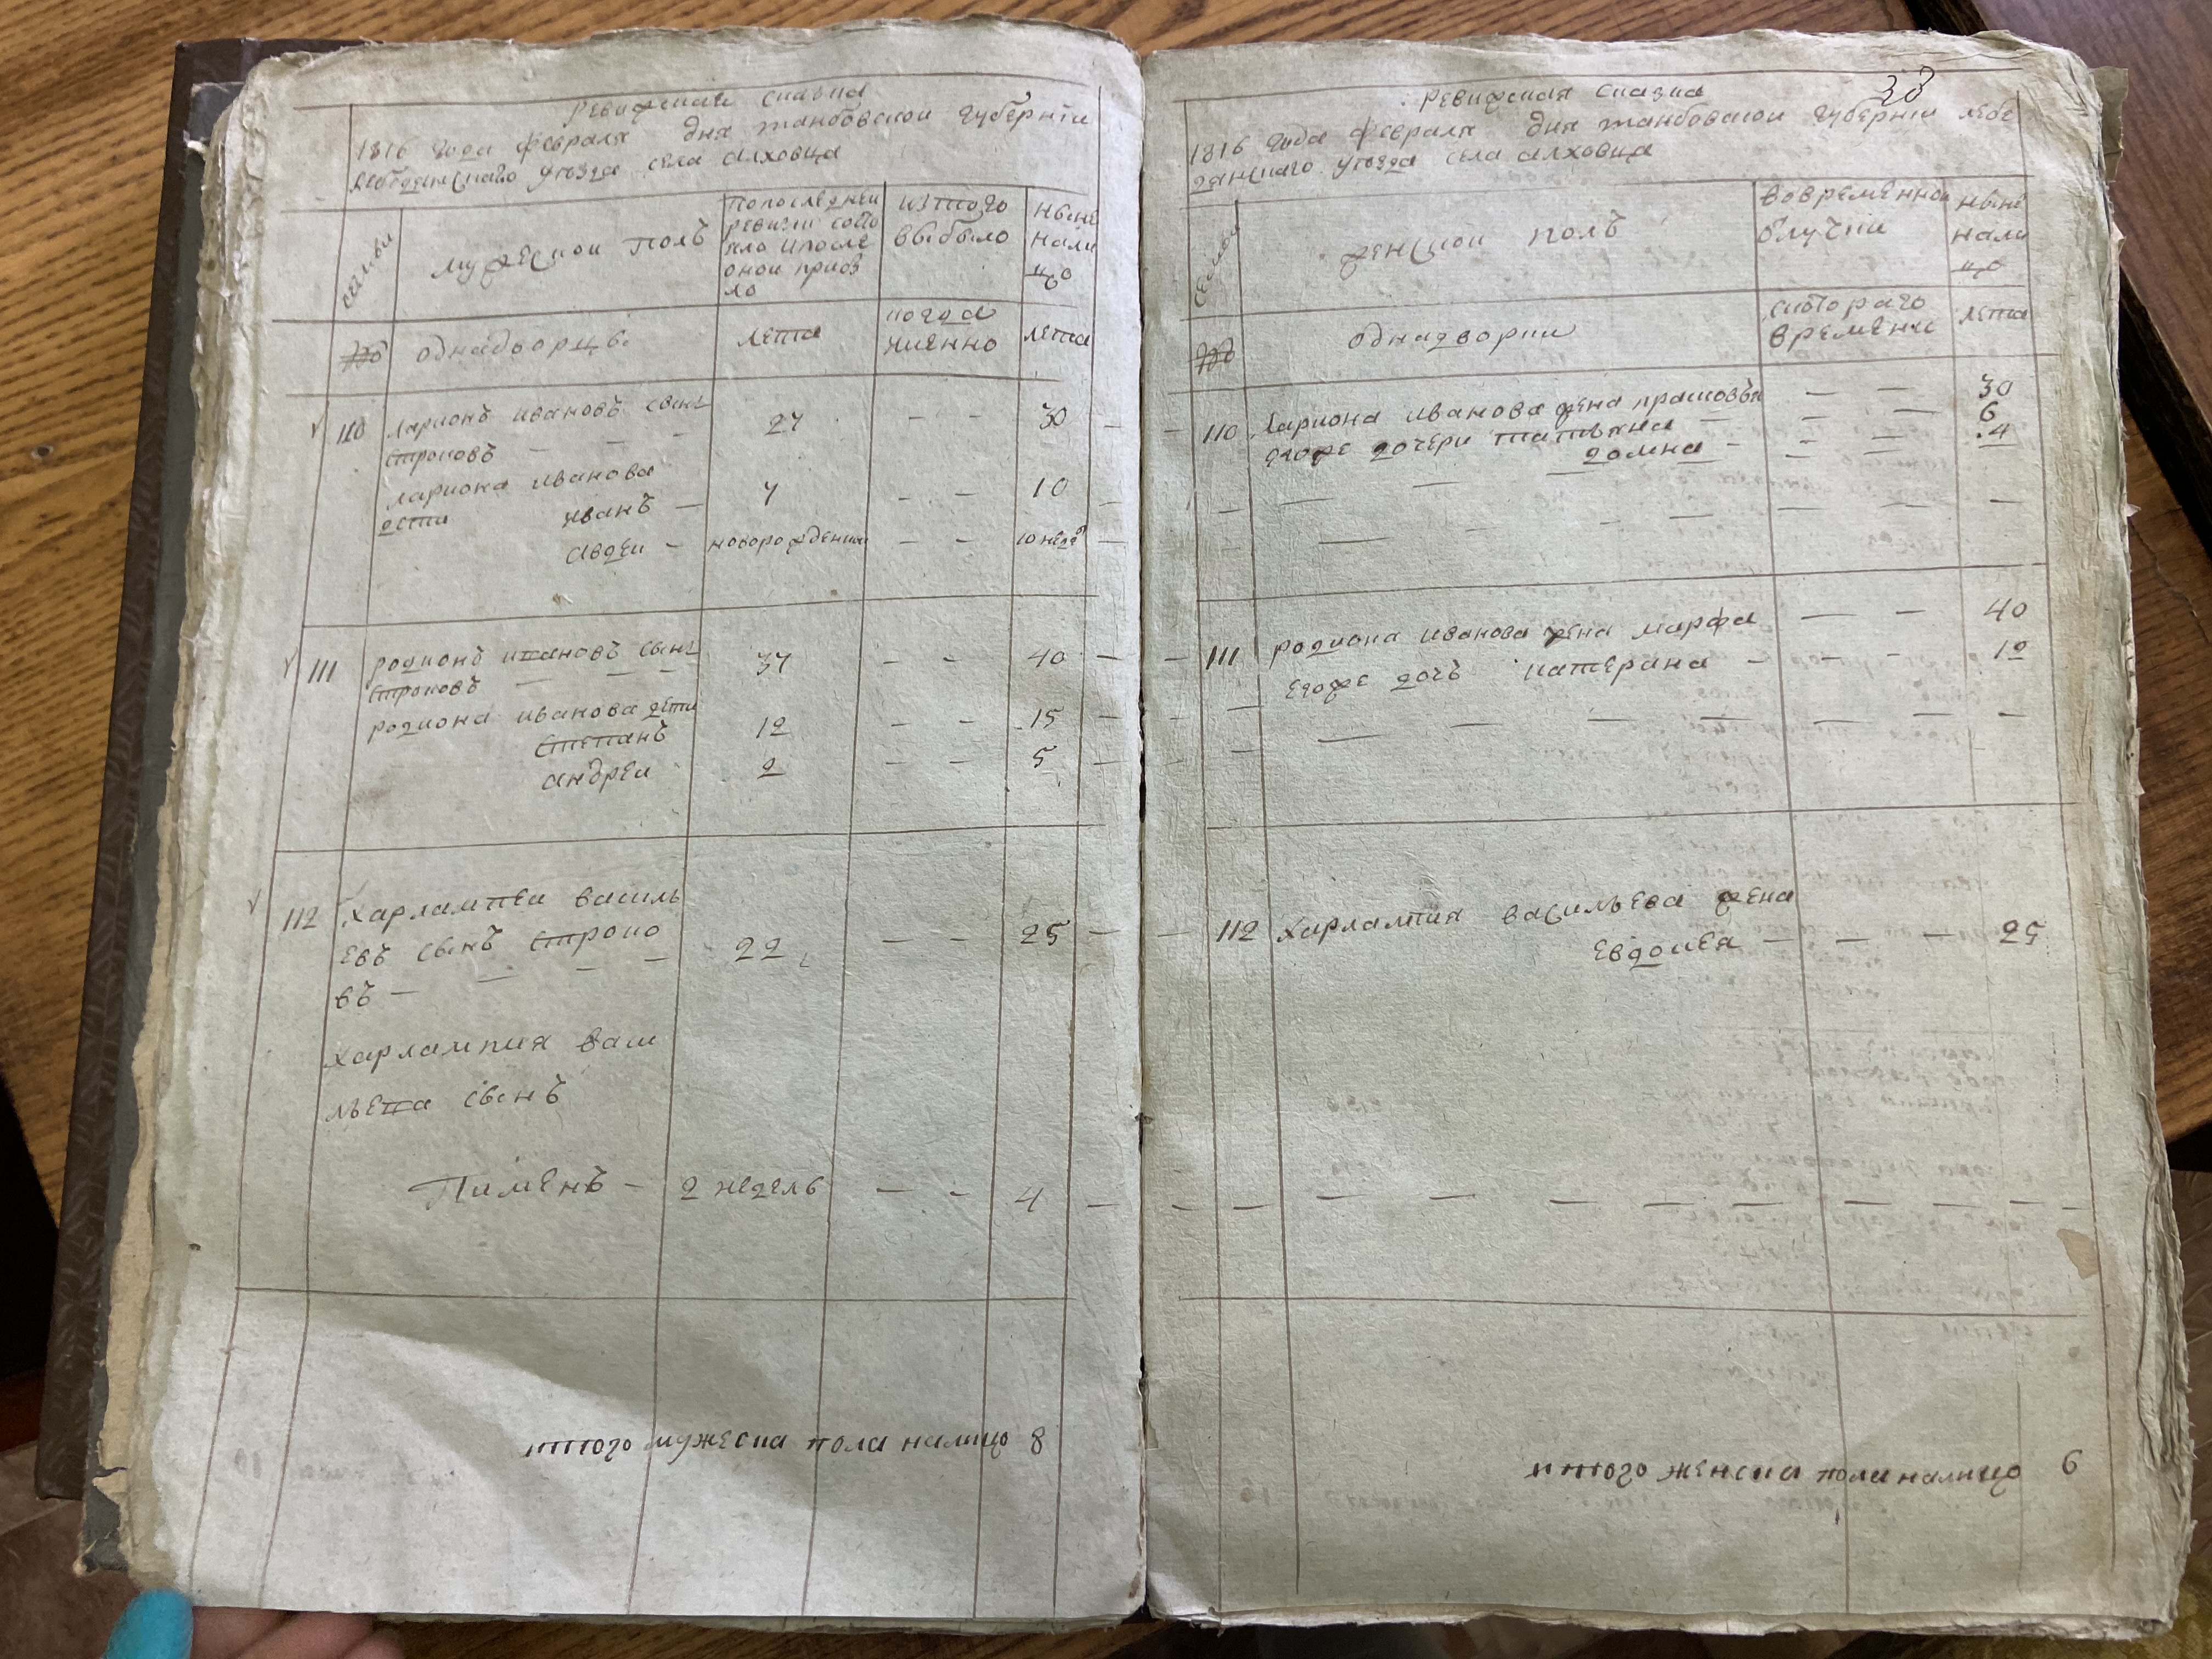 ревижская сказка
1816 года февраля дня танбовской губернїи
лебедянскаго уезда села алховца
семьи
мужеской полъ
попоследней
ревизи состо
яло ипосле
оной прибы
ло
изтого
выбыло
ныне
нали
цо
однадворцы
лета
когда
имянно
лета
110 ларионъ ивановъ сынъ 27 - - 30
строковъ - - -
лариона иванова
дети иванъ - 7 - - 10
авдеи - новорожденнои - - 10 недѣ
111 родионъ ивановъ сынъ 37 - - 40
строковъ - - -
родиона иванова дети
степанъ 12 - - 15
андреи 2 - - 5
112 харлампеи василь
евъ сынъ строко 22 - - 25
въ - - - -
харлампия васи
льева сынъ
Пименъ - 2 недель - - 4
итого мужеска пола налицо 8
38
ревижская сказка
1816 года февраля дня танбовской губернїи лебе
данскаго уезда села алховца
семьи
женской полъ
вовременной
отлучки
ныне
нали
цо
однадворки
скотораго
времени
лета
110 лариона иванова жена прасковья - - 30
егоже дочери татьяна - - - 6
домна - - - 4
111 родиона иванова жена марфа - - 40
егоже дочь катерина - - - 12
112 харлампия васильева жена
евдокея - - - 25
итого женска пола налицо 6